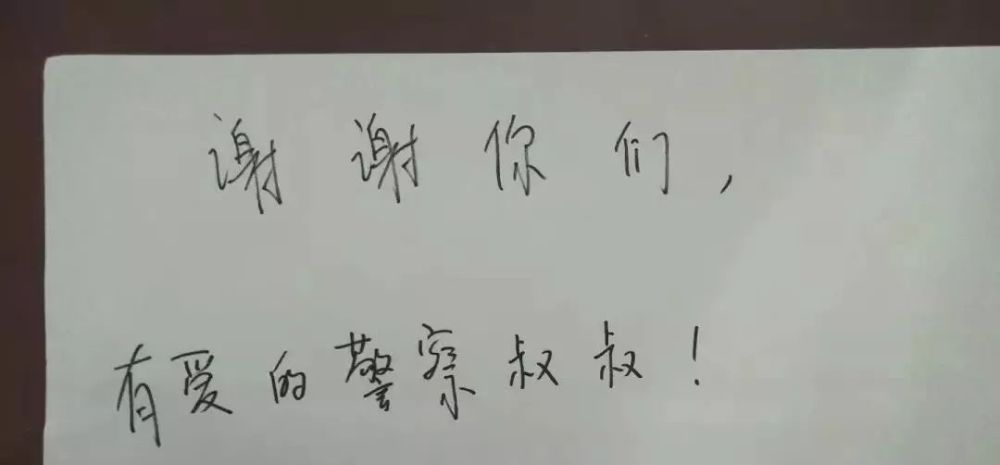 谢谢你们,
有爱的警察叔叔!